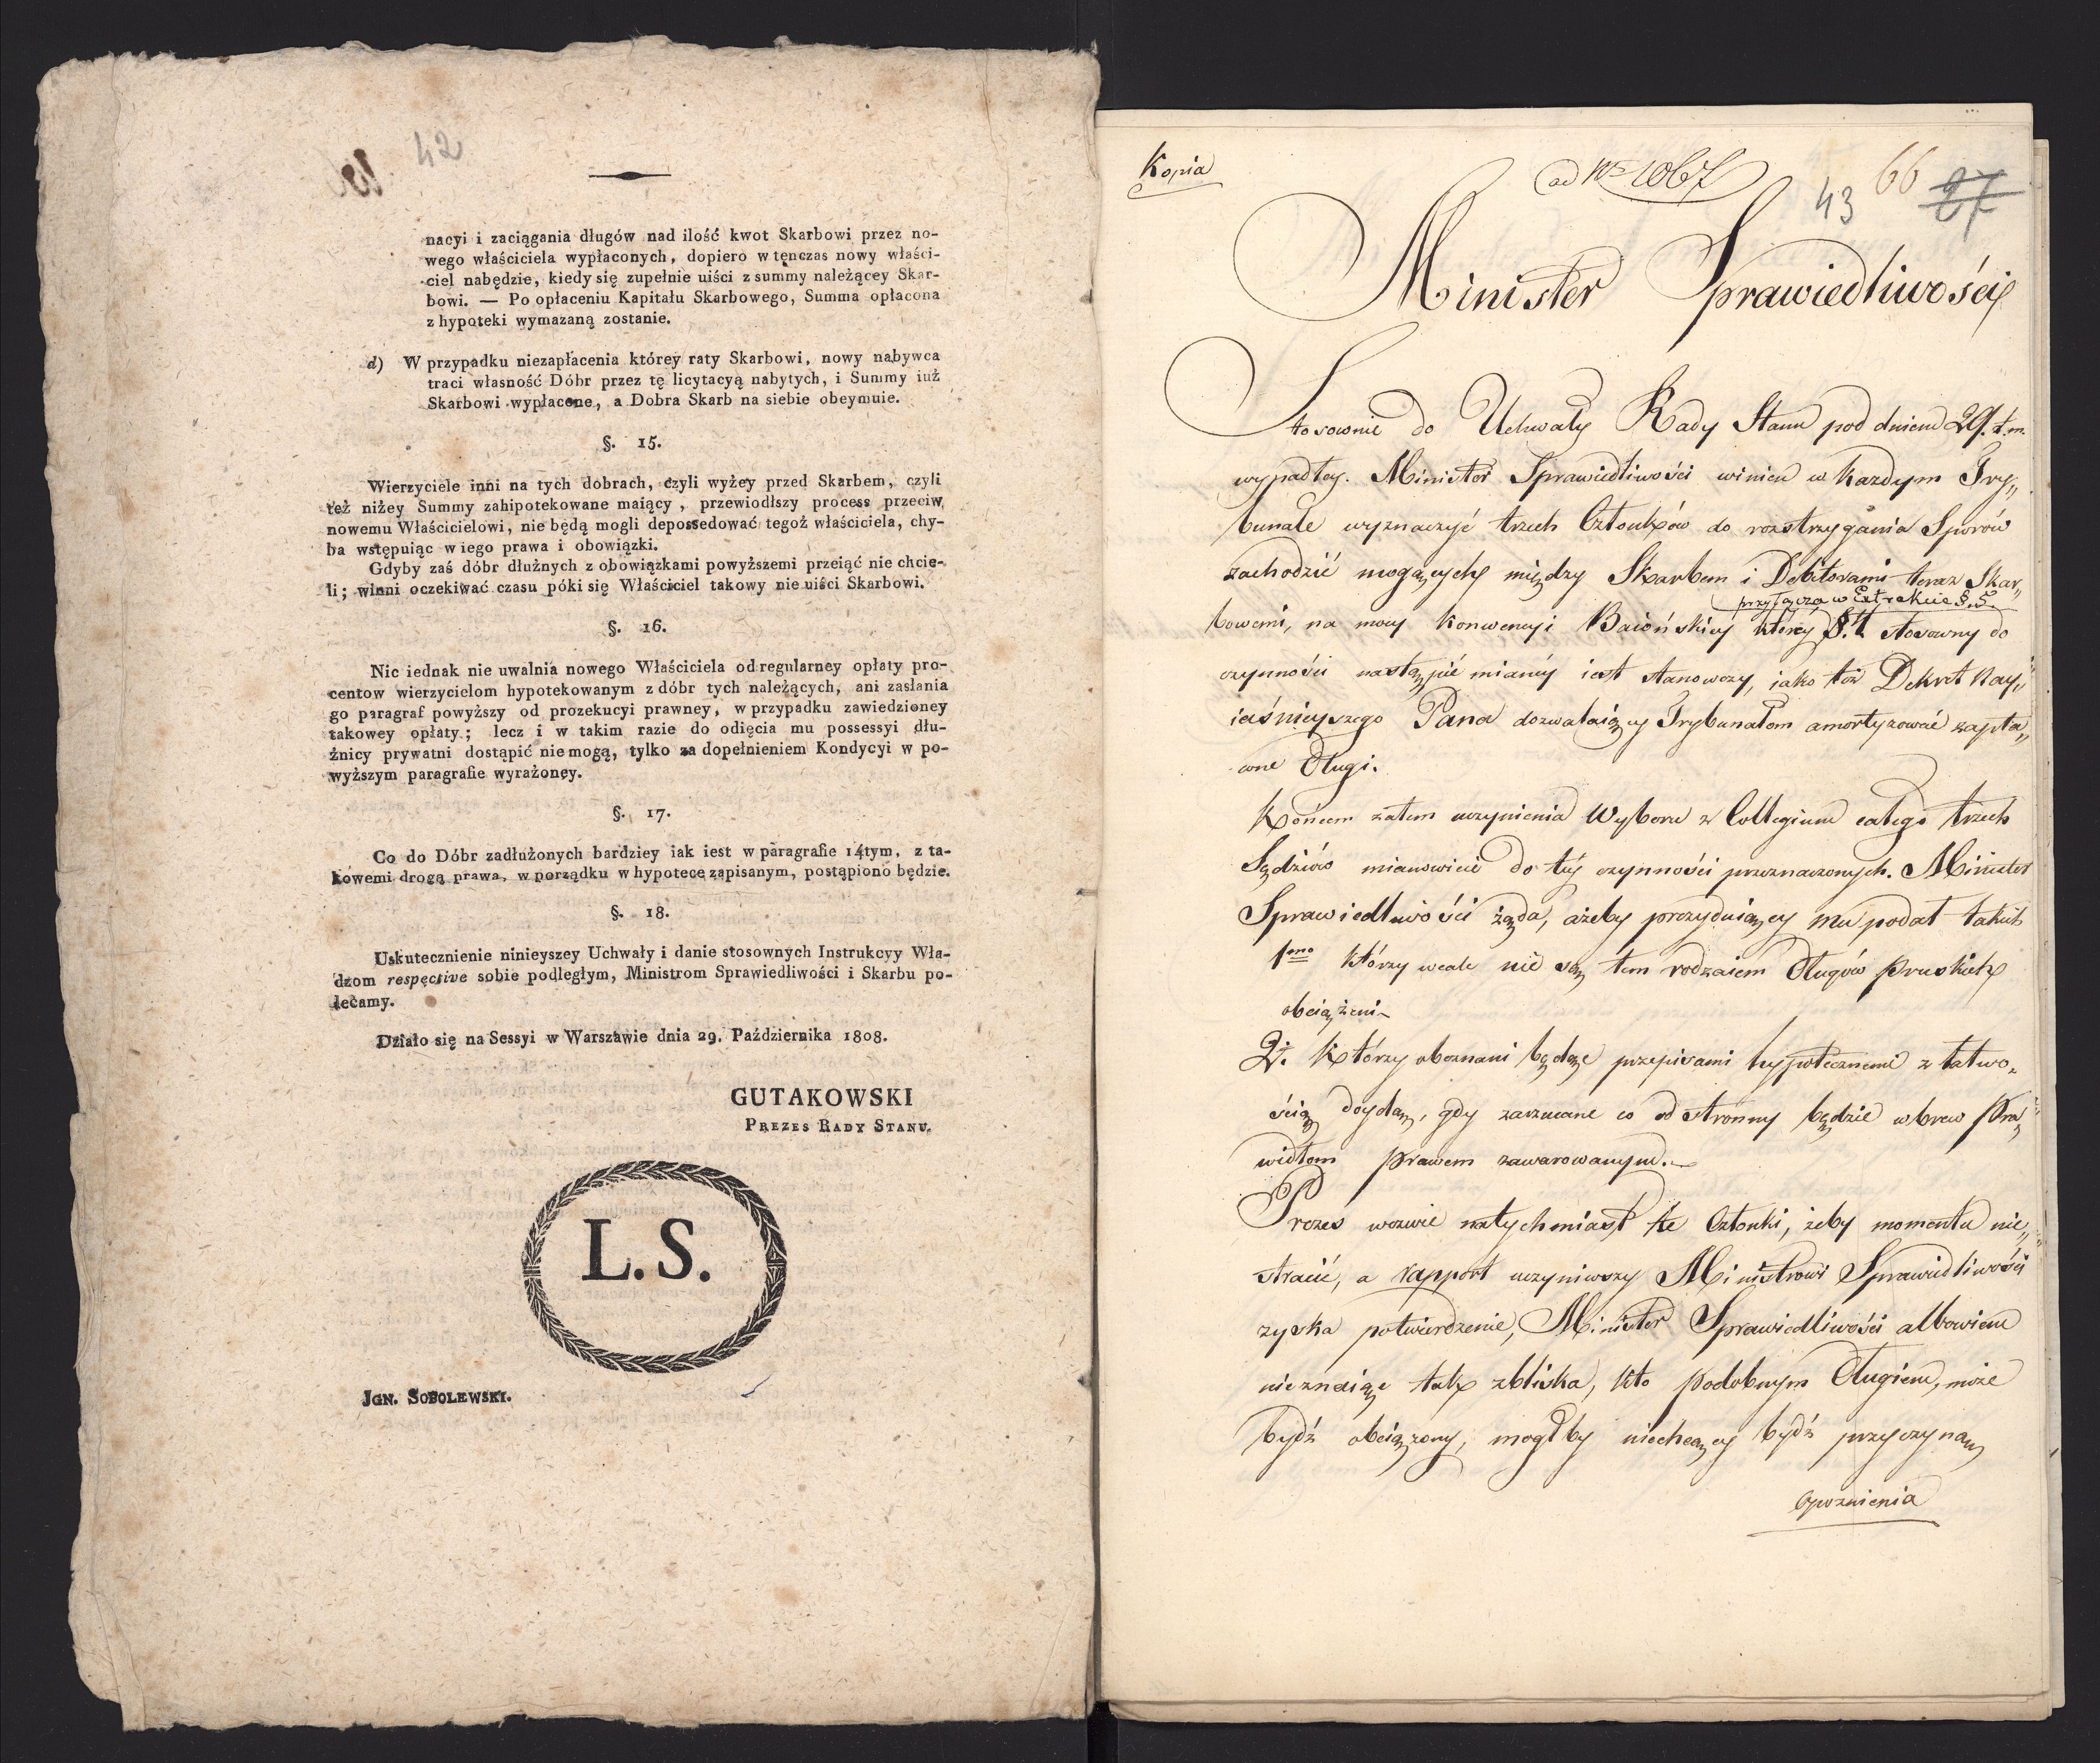 42
nacyi i zaciągania długów nad ilość kwot Skarbowi przez no-
wego właściciela wypłaconych, dopiero w tenczas nowy właści-
ciel nabędzie, kiedy się zupełnie uiści z summy należącey Skar-
bowi. — Po opłaceniu Kapitału Skarbowego, Summa opłacona
z hypoteki wymazaną zostanie.
d) W przypadku niezapłacenia którey raty Skarbowi, nowy nabywca
traci własność Dóbr przez tę licytacyą nabytych, i Summy iuż
Skarbowi wypłacone, a Dobra Skarb na siebie obeymuie.
§. 15.
Wierzyciele inni na tych dobrach, czyli wyżey przed Skarbem, czyli
też niżey Summy zahipotekowane maiący, przewiodłszy process przeciw
nowemu Właścicielowi, nie będą mogli depossedować tegoż właściciela, chy-
ba wstępuiąc w iego prawa i obowiązki.
Gdyby zaś dóbr dłużnych z obowiązkami powyższemi przeiąć nie chcie-
li; winni oczekiwać czasu póki się Właściciel takowy nie uiści Skarbowi.
§. 16.
Nic iednak nie uwalnia nowego Właściciela od regularney opłaty pro-
centow wierzycielom hypotekowanym z dóbr tych należących, ani zasłania
go paragraf powyższy od prozekucyi prawney, w przypadku zawiedzioney
takowey opłaty; lecz i w takim razie do odięcia mu possessyi dłu-
żnicy prywatni dostąpić nie mogą, tylko za dopełnieniem Kondycyi w po-
wyższym paragrafie wyrażoney.
§. 17.
Co do Dóbr zadłużonych bardziey iak iest w paragrafie 14tym, z ta-
kowemi drogą prawa, w porządku w hypotece zapisanym, postąpiono będzie.
§. 18.
Uskutecznienie ninieyszey Uchwały i danie stosownych Instrukcyy Wła-
dzom respective sobie podległym, Ministrom Sprawiedliwości i Skarbu po-
lecamy.
Działo się na Sessyi w Warszawie dnia 29. Października 1808.
GUTAKOWSKI
PREZES RADY STANU.
L. S.
JGN. SOBOLEWSKI.
Kopia
ad Nro 1067
43 66 27
Minister Sprawiedliwości
Stosownie do Uchwały Rady Stanu pod dniem 29. t.m.
wypadłey. Minister Sprawiedliwości winien w każdym Try„
bunale wyznaczyć trzech Członków do rozstrzygania Sporów
zachodzić mogących między Skarbem i Debitorami teraz Skar„
przyłącza w Extrakcie §. 5.
bowemi, na mocy Konwencyi Baiońskiey którey §. 4 stosowny do
czynności nastąpić mianey iest stanowczy, iako też Dekret Nay„
iaśnieyszego Pana dozwalaiący Trybunałom amortyzować zapła„
cone Długi.
Końcem zatem uczynienia Wyboru z Collegium całego trzech
Sędziów mianowicie do téy czynności przeznaczonych. Minister
Sprawiedliwości żąda, ażeby prezyduiący mu podał takich
1mo którzy wcale nie są tem rodzaiem Długów Pruskich
obciążeni
2. Którzy obeznani będąc przepisami hypotecznemi z łatwo„
ścią doydą, gdy zarzucane co od strony będzie wbrew Pra„
widłom Prawem zawarowanym.
Prezes wezwie natychmiast te Członki, żeby momentu nie„
stracić, a rapport uczyniwszy Ministrowi Sprawiedliwości
zyska potwierdzenie, Minister Sprawiedliwości albowiem
nieznaiąc tak zbliska, kto podobnym Długiem, może
bydź obciążony, mogłby niechcący bydź przyczyną
opoznienia